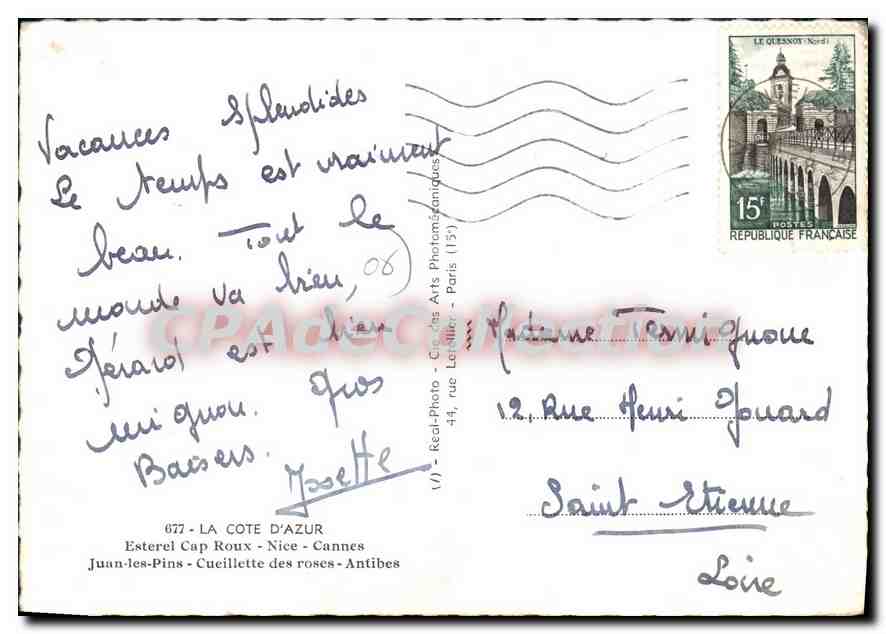 Vacances splendides
Le temps est vraiment
beau. Tout le
monde va bien,
Gérard est bien
mignon. Gros
Baisers. Josette
06
677 - LA COTE D'AZUR
Esterel Cap Roux - Nice - Cannes
Juan-les-Pins - Cueillette des roses - Antibes
(7) - Real-Photo - Cie des Arts Photomécaniques
44, rue Letellier - Paris (15e)
LE QUESNOY (Nord)
15F
POSTES
REPUBLIQUE FRANÇAISE
Madame
12, Rue Henri Gonard
Saint Etienne
Loire
CPAdeCollection